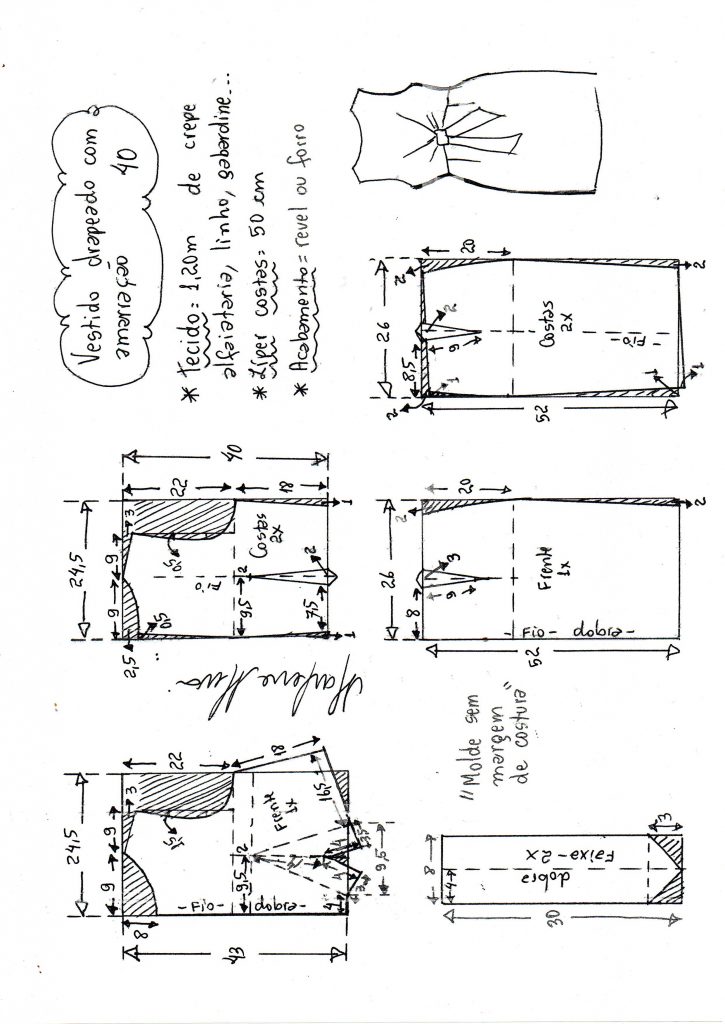 Vestido drapeado com
amarração 40
* Tecido = 1,20m de crepe
alfaiataria, linho, gabardine...
* Zíper costas = 50 cm
* Acabamento = revel ou forro
24,5
9
9
3
8
22
18
43
1,5
2
9,5
Frente
1x
-Fio- dobra-
16,5
3,5
4
3
9,5
24,5
9
9
3
2,5
0,5
0,5
22
18
40
Costas
2x
Fio
2
9,5
7,5
2
1
1
Marlene Mukai
"Molde sem
margem
de costura"
8
4
30
dobra
Faixa-2x
3
26
8
2
20
3
9
52
Frente
1x
-Fio- dobra-
2
26
8,5
2
2
20
2
9
52
Costas
2x
-Fio-
1
1
2